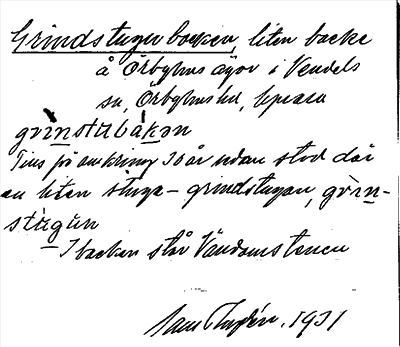 Grindstugubacken, liten backe
å Örbyhus ägor i Vendels
sn, Örbyhus hd, Uppsala
grìnstubákən
Tills på omkring 50 år sedan stod där
en liten stuga - grindstugan, grìn-
stùgun
I backen står Vändomstenen
1931